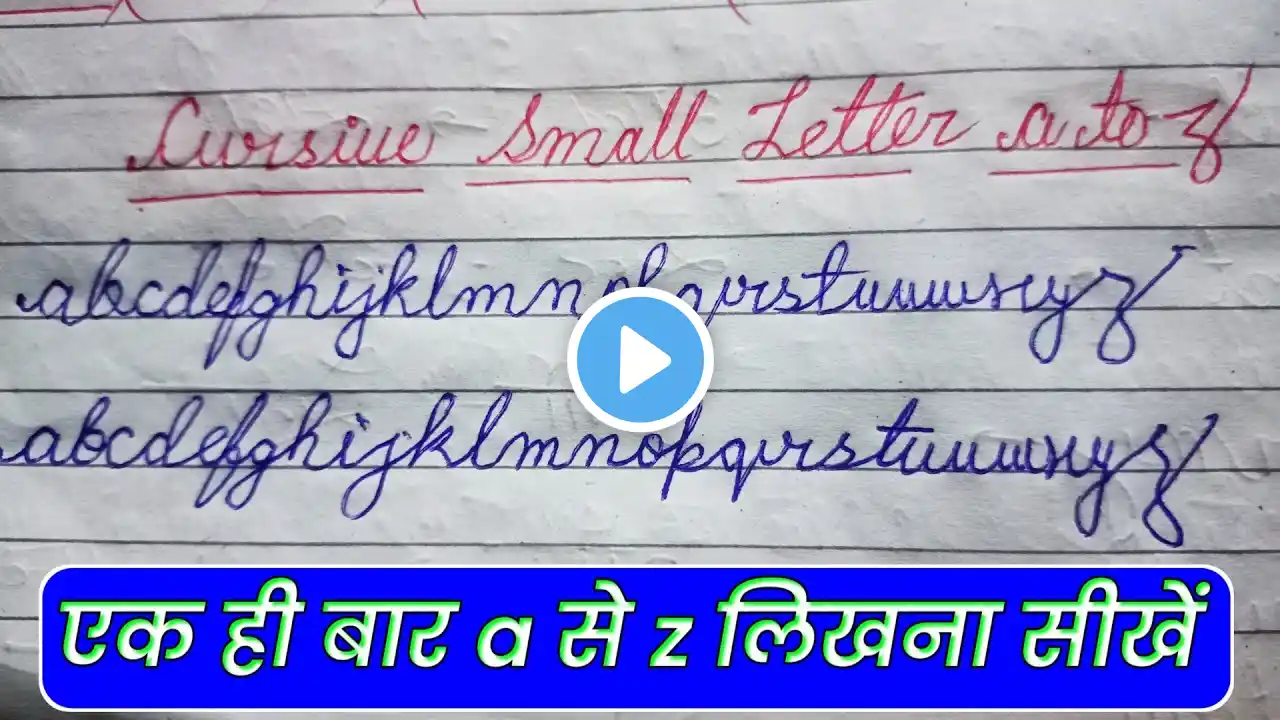 Cursive Small Letter a to z
abcdefghijklmnopqrstuvwxyz
abcdefghijklmnopqrstuvwxyz
एक ही बार a से z लिखना सीखें